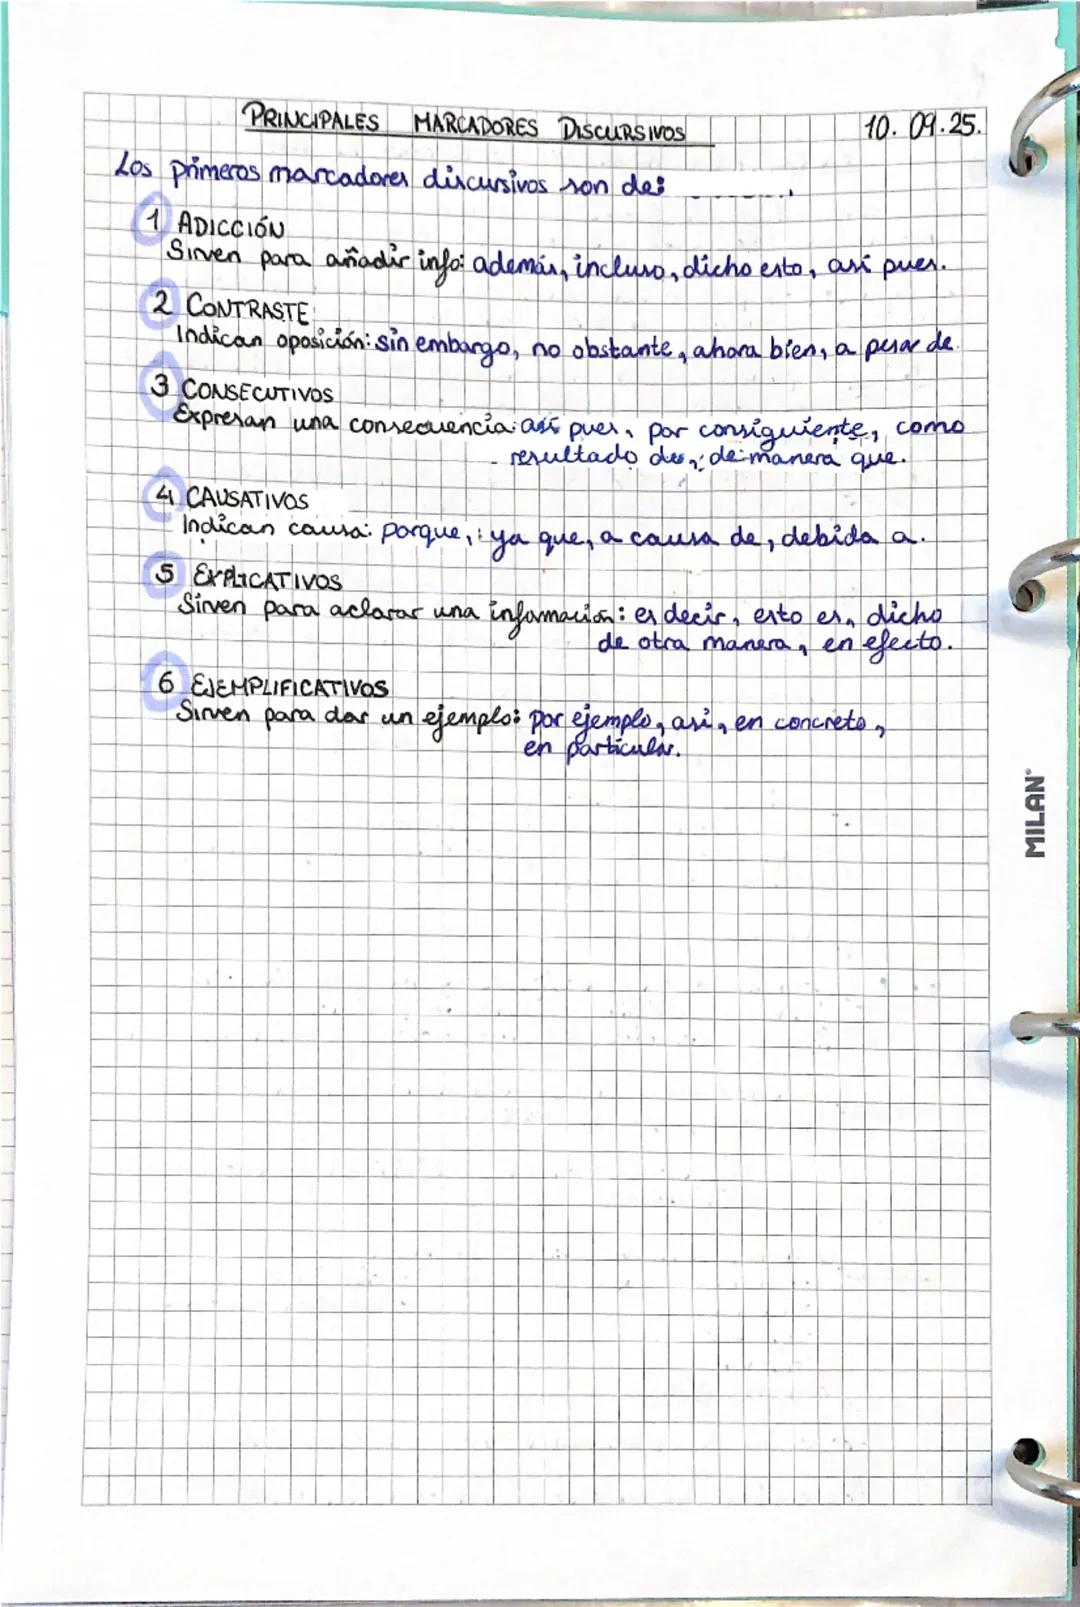 PRINCIPALES MARCADORES DISCURSIVOS 10. 09. 25.
Los primeros marcadores discursivos son de:
1 ADICCIÓN
Sirven para añadir info: además, incluso, dicho esto, así pues.
2 CONTRASTE
Indican oposición: sin embargo, no obstante, ahora bien, a pesar de
3 CONSECUTIVOS
Expresan una consecuencia: así pues, por consiguiente, como
resultado de, de manera que.
4 CAUSATIVOS
Indican causa: porque, ya que, a causa de, debida a.
5 EXPLICATIVOS
Sirven para aclarar una información: es decir, esto es, dicho
de otra manera, en efecto.
6 EJEMPLIFICATIVOS
Sirven para dar un ejemplo: por ejemplo, así, en concreto,
en particular.
MILAN